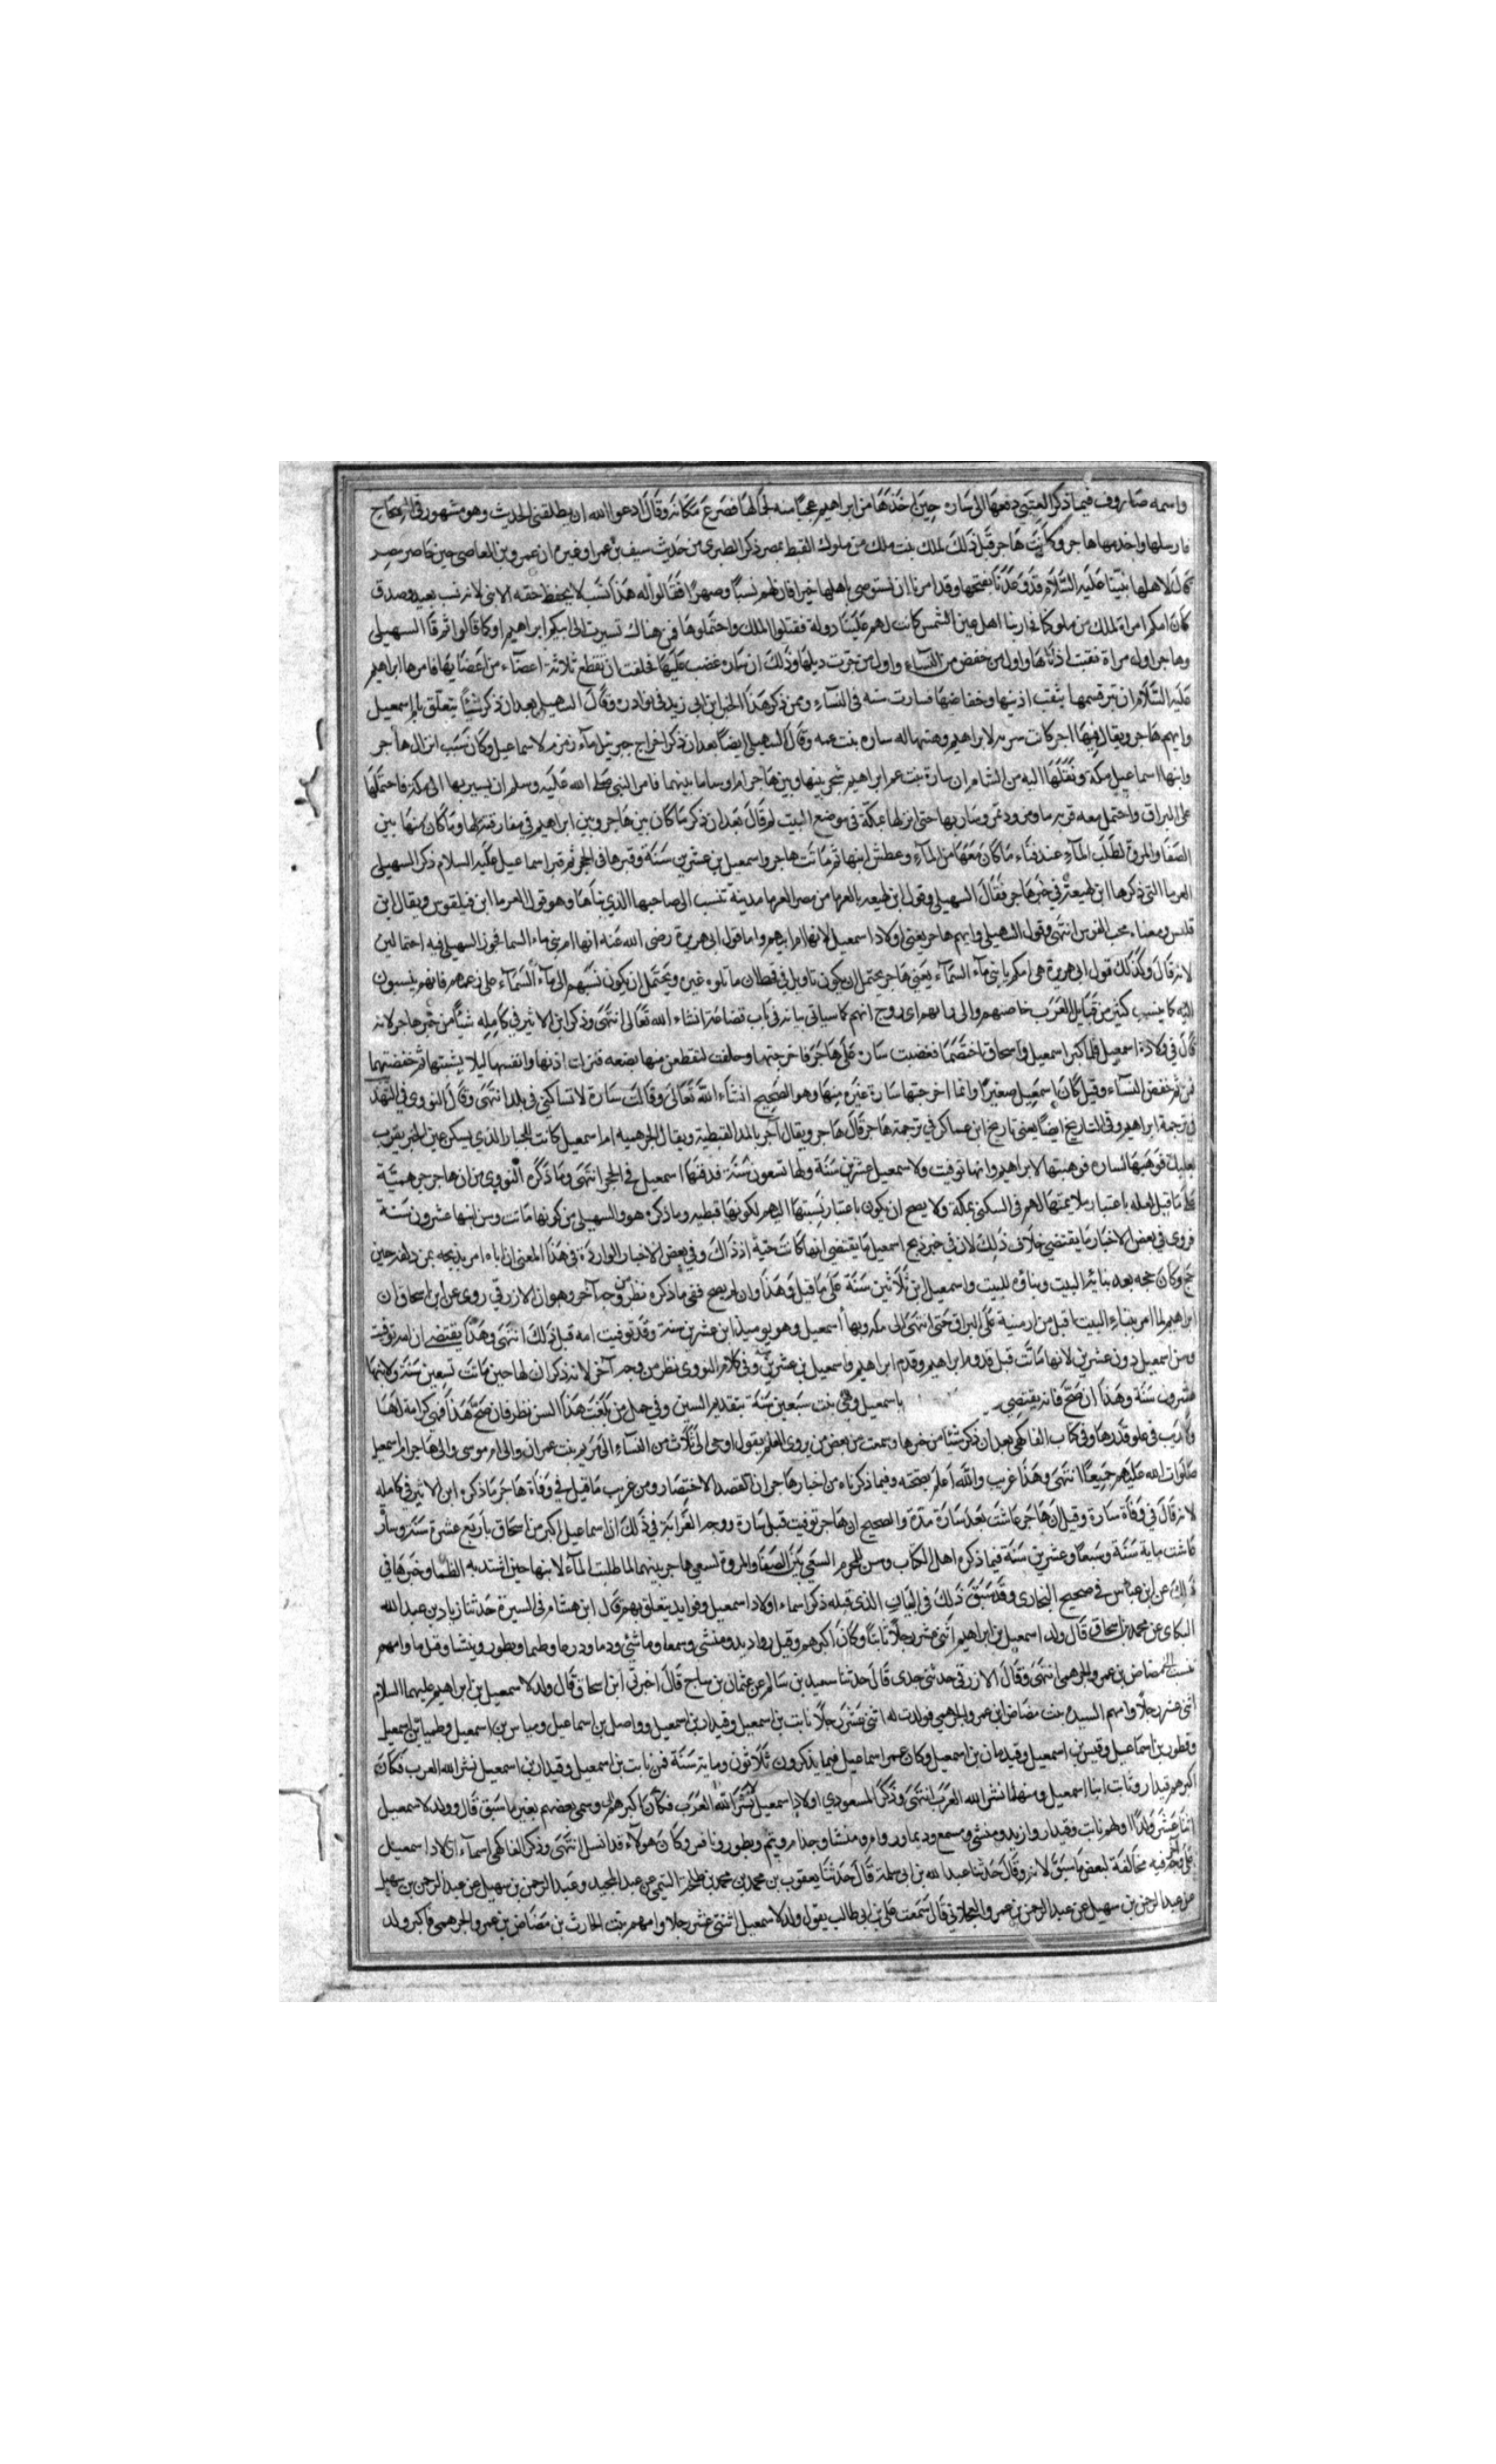 واسمه صاروف فيما ذكر العتبي دفعها الى ساره حين اخذها من ابراهيم عجبا منه لجمالها فصرع مكانه وقال ادعوا الله ان يطلقني الحديث وهو مشهور في الصحاح
فارسلها واخدمها هاجر وكانت هاجر قبل ذلك لملك بنت ملك من ملوك القبط بمصر ذكر الطبرى من حديث سيف بن عمر او غيره ان عمرو بن العاصى حين حاصر مصر
قال لاهلها ان نبينا عليه السلام قد وعدنا بفتحها وقد امرنا ان نستوصى باهلها خيرا فان لهم نسبا وصهرا فقالوا له هذا نسب لا يحفظ حقه الا نبي لانه نسب بعيد وصدق
كانت امكم امراة لملك من ملوكنا فحاربنا اهل عين الشمس كانت لهم علينا دولة فقتلوا الملك واحتملوها فمن هناك تسيرت الى ابيكم ابراهيم او كما قالوا ثم قال السهيلى
وهاجر اول مراة ثقبت اذناها واول من خفض من النساء واول من جرت ذيلها وذلك ان ساره غضبت عليها فحلفت ان تقطع ثلاثة اعضاء من اعضايها فامرها ابراهيم
عليه السلام ان تبر قسمها بثقب اذنيها وخفاضها فصارت سنه في النساء وممن ذكر هذا الخبر ابن ابي زيد في نوادره وقال السهيلي بعد ان ذكر شيئا يتعلق باسمعيل
وامهم هاجر ويقال فيها اجر كانت سريه لابراهيم وهبتها له ساره بنت عمه وقال السهيلي ايضا بعد ان ذكر اخراج جبريل ماء زمزم لاسماعيل وكان سبب انزال هاجر
وابنها اسماعيل بمكة ونقلها اليه من الشام ان سارة بنت عم ابراهيم شجر بينها وبين هاجر امر وساء ما بينهما فامر النبي صلى الله عليه وسلم ان يسير بها الى مكة فاحتملها
على البراق واحتمل معه قربه ماء ومزود تمر وسار بها حتى انزلها بمكة في موضع البيت ثم قال بعد ان ذكر ما كان بين هاجر وبين ابراهيم في مفارقته لها وما كان منها بين
الصفا والمروة لطلب الماء عند فناء ما كان معها من الماء وعطش ابنها ثم ماتت هاجر واسمعيل بن عشرين سنة وقبرها في الحجر ثم قبر اسماعيل عليه السلام ذكر السهيلى
الفرما التي ذكرها ابن لهيعة في خبر هاجر فقال السهيلى وقول ابن لهيعه بالفرما من مصر الفرما مدينة تنسب الى صاحبها الذي بناها وهو قول الفرما ابن فيلقوس ويقال ابن
قلبس ومعناه محب الغرس انتهى وقول السهيلى وامهم هاجر يعني اولاد اسمعيل لانها ام ابيهم واما قول ابى هريرة رضى الله عنه انها ام بني ماء السماء فجوز السهيلى فيه احتمالين
لانه قال وكذلك قول ابى هريرة هي امكم يا بني ماء السماء يعني هاجر يحتمل ان يكون تاول في قحطان ما تاوله غيره ويحتمل ان يكون نسبهم الى ماء السماء على زعمهم فانهم ينسبون
اليه كما ينسب كثير من قبايل العرب الى حاضنتهم والى رابهم اى زوج امهم كما سياتى بيانه في باب قضاعة انشاء الله تعالى انتهى وذكر ابن الاثير في كامله شيئا من خبر هاجر لانه
قال في ولادة اسمعيل فلما كبر اسمعيل واسحاق اختصما فغضبت ساره على هاجر فاخرجتها وحلفت لتقطعن منها بضعه فتركت اذنها وانفسها ليلا يشينها ثم خفضتها
فمن ثم خفض النساء وقيل كان اسمعيل صغيرا وانما اخرجتها سارة غيرة منها وهو الصحيح انشاء الله تعالى وقالت سارة لا تساكنني في بلد انتهى وقال النووي في التهذ
في ترجمة ابراهيم وفي التاريخ ايضا يعني تاريخ ابن عساكر في ترجمة هاجر قال هاجر ويقال آجر بالمد القبطية ويقال الجرهميه ام اسمعيل كانت للجبار الذي يسكن عين الجر بقرب
بعلبك فوهبها لساره فوهبتها لابراهيم وانها توفيت ولاسمعيل عشرين سنة ولها تسعون سنة فدفنها اسمعيل في الحجر انتهى وما ذكره النووي من ان هاجر جرهمية
على ما قيل لعله باعتبار ملايمتها لهم في السكنى بمكة ولا يصح ان يكون باعتبار نسبتها اليهم لكونها قبطيه وما ذكره هو والسهيلى من كونها ماتت وسن ابنها عشرون سنة
فروى في بعض الاخبار ما يقتضي خلاف ذلك لان في خبر ذبح اسمعيل ما يقتضي انها كانت حية اذ ذاك وفي بعض الاخبار الواردة في هذا المعنى ان اباه امر بذبحه بمزدلفه حين
حج وكان حجه بعد بنائه البيت وبناؤه للبيت واسمعيل ابن ثلاثين سنة على ما قيل وهذا وان لم يصح ففي ما ذكره نظر من وجه آخر وهو ان الازرقي روى عن ابن اسحاق ان
ابراهيم لما امر ببناء البيت اقبل من ارمنية على البراق حتى انتهى الى مكه وبها اسمعيل وهو يوميذ ابن عشرين سنة وقد توفيت امه قبل ذلك انتهى وهذا يقتضى ان امه توفيت
وسن اسمعيل دون عشرين لانها ماتت قبل قدوم ابراهيم وقدم ابراهيم واسمعيل بن عشرين سنة وفي كلام النووى نظر من وجه آخر لانه ذكر ان لها حين ماتت تسعين سنة ولابنها
عشرون سنة وهذا ان صح فانه يقتضى باسمعيل وهي بنت سبعين سنة بتقديم السين وفي حمل من بلغت هذا السن نظر فان صح هذا فهي كرامة لها
ولا ريب في علو قدرها وفي كتاب الفاكهى بعد ان ذكر شيئا من خبرها وسمعت من بعض من يروى العلم يقول اوحى الى ثلاث من النساء الى مريم بنت عمران والى ام موسى والى هاجر ام اسمعيل
صلوات الله عليهم جميعا انتهى وهذا غريب والله اعلم بصحته وفيما ذكرناه من اخبار هاجر ان القصد الاختصار ومن غريب ما قيل في وفاة هاجر ما ذكره ابن الاثير في كامله
لانه قال في وفاة سارة وقيل ان هاجر عاشت بعد سارة مدة والصحيح ان هاجر توفيت قبل سارة ووجه الغرابة في ذلك ان اسماعيل اكبر من اسحاق باربع عشرة سنة وسارة
عاشت ماية سنة وسبعا وعشرين سنة فيما ذكره اهل الكتاب وسن للمحرم السعي بين الصفا والمروة لسعي هاجر بينهما لما طلبت الماء لابنها حين اشتد به الظما وخبرها في
ذلك عن ابن عباس في صحيح البخارى وقد سبق ذلك في الباب الذى قبله ذكر اسماء اولاد اسمعيل وفوايد يتعلق بهم قال ابن هشام في السيرة حدثنا زياد بن عبد الله
البكاى عن محمد بن اسحاق قال ولد اسمعيل بن ابراهيم اثنى عشر رجلا نابتا وكان اكبرهم وقيل رواديد ومنشى وسمعا وماشي ودما ودرما وطيما ويطور ونيشا وقيل ما وامهم
بنت مضاض بن عمرو الجرهمى انتهى وقال الازرقى حدثنى جدى قال حدثنا سعيد بن سالم عن عثمان بن ساج قال اخبرنى ابن اسحاق قال ولد لاسمعيل بن ابراهيم عليهما السلام
اثنى عشر رجلا وامهم السيده بنت مضاض ابن عمرو الجرهمي فولدت له اثنى عشر رجلا نابت بن اسمعيل وقيدار بن اسمعيل وواصل بن اسماعيل ومياس بن اسمعيل وطيبا بن اسمعيل
وقطور بن اسماعيل وقيس بن اسمعيل وقيدمان بن اسمعيل وكان عمر اسماعيل فيما يذكرون ثلاثون وماية سنة فمن نابت بن اسمعيل وقيدار بن اسمعيل نشر الله العرب فكان
اكبرهم قيدار ونابت ابنا اسمعيل ومنهما نشر الله العرب انتهى وذكر المسعودي اولاد اسمعيل الذين نشر الله العرب فكان اكبرهم وسمى بعضهم بغير ما سبق قال وولد لاسمعيل
اثنا عشر ولدا اولهم نابت وقيدار وازبد ومنشى ومسمع وديما ورواه ومنشا وحذام وميم ويطور ونافس وكان هولاء قد انسل انتهى وذكر الفاكهى اسماء اولاد اسمعيل
على وجه فيه مخالفة لبعض ما سبق لانه وقال حدثنا عبد الله بن ابى سلمة قال حدثنا يعقوب بن محمد بن محمد بن طلحة التيمى عن عبد المجيد وعبد الرحمن بن سهيل عن عبد الرحمن بن سهيل
عن عبد الرحمن بن سهيل عن عبد الرحمن بن عمرو العجلاني قال سمعت على بن ابى طالب يقول ولد لاسمعيل اثنتي عشر رجلا وامهم بنت الحارث بن مضاض بن عمرو الجرهمى فاكبر ولد